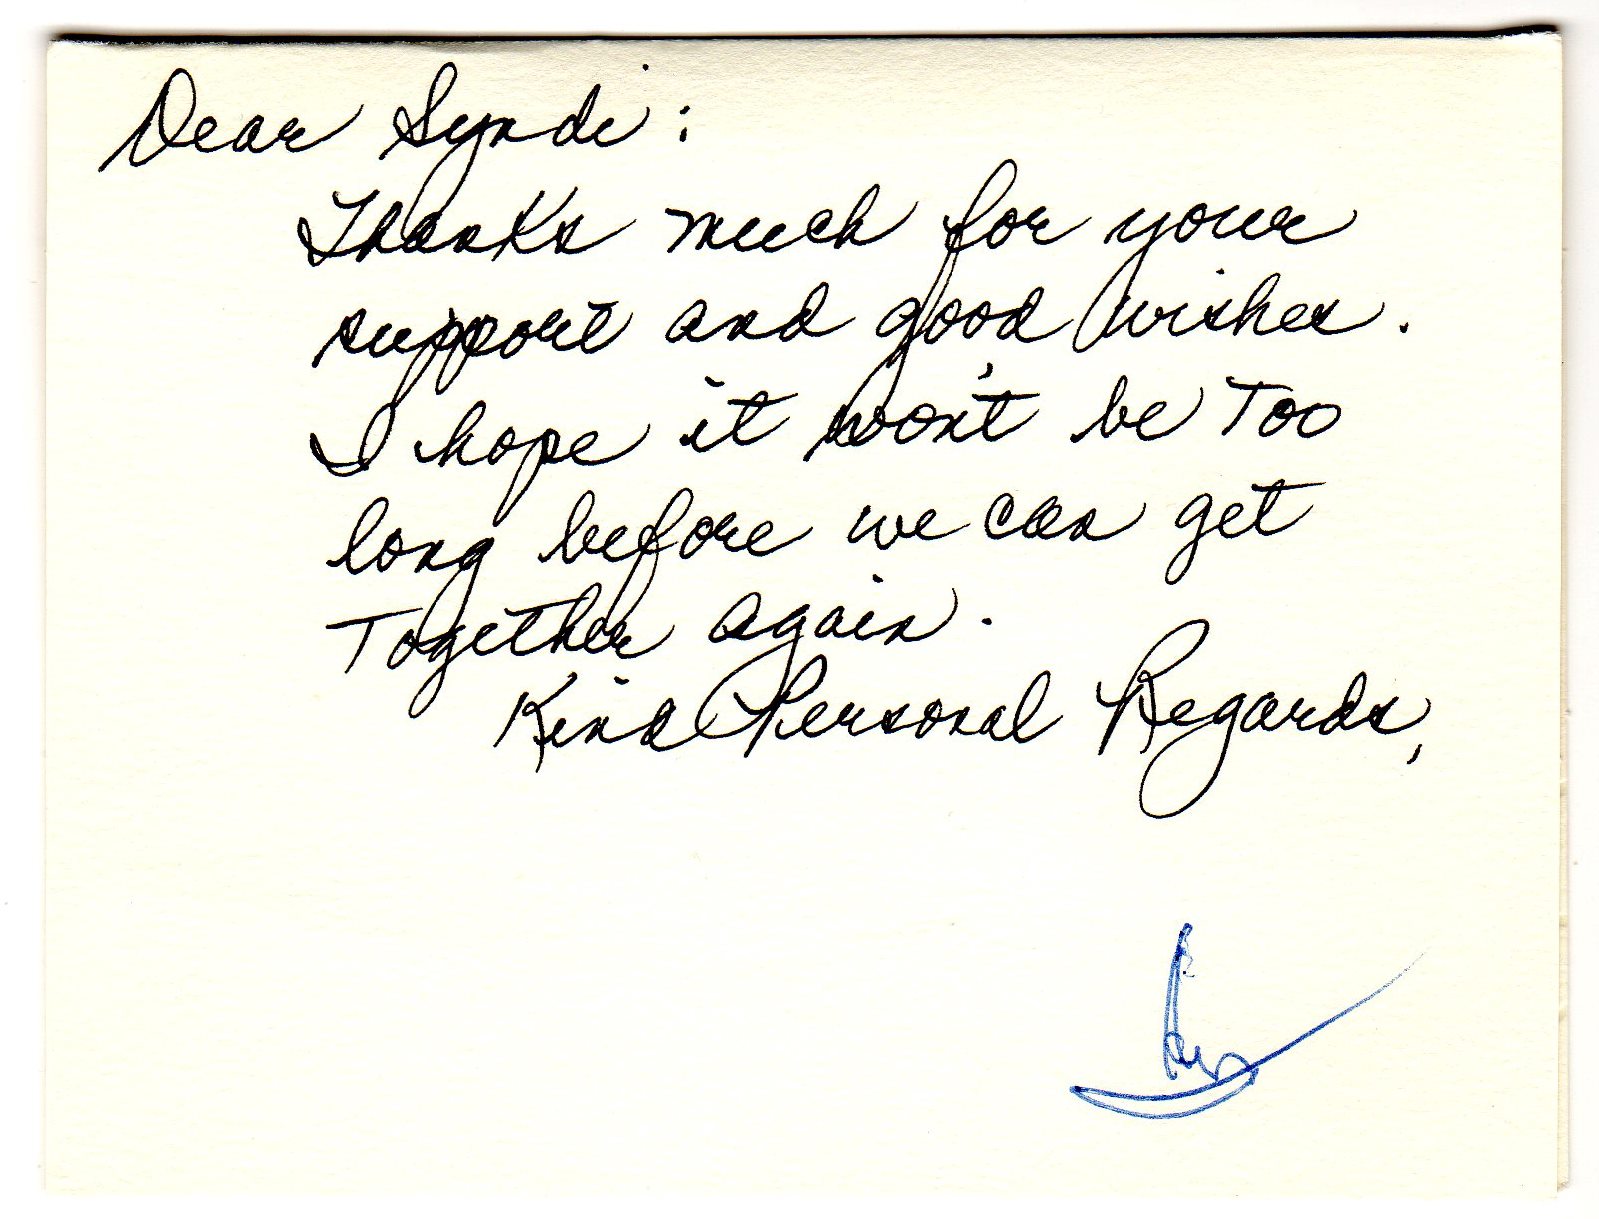 Dear Syndi:
Thanks much for your
support and good wishes.
I hope it won't be Too
long before we can get
Together again.
Kind Personal Regards,